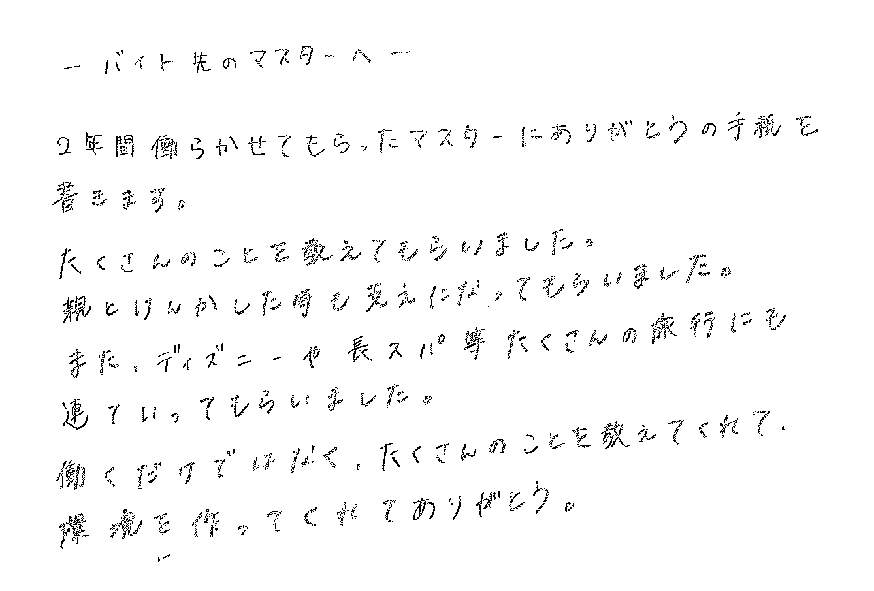 ー バイト先のマスターへ ー
2年間働らかせてもらったマスターにありがとうの手紙を
書きます。
たくさんのことを教えてもらいました。
親とけんかした時も支えになってもらいました。
また、ディズニーや長スパ等たくさんの旅行にも
連ていってもらいました。
働くだけではなく、たくさんのことを教えてくれて、
環境を作ってくれてありがとう。